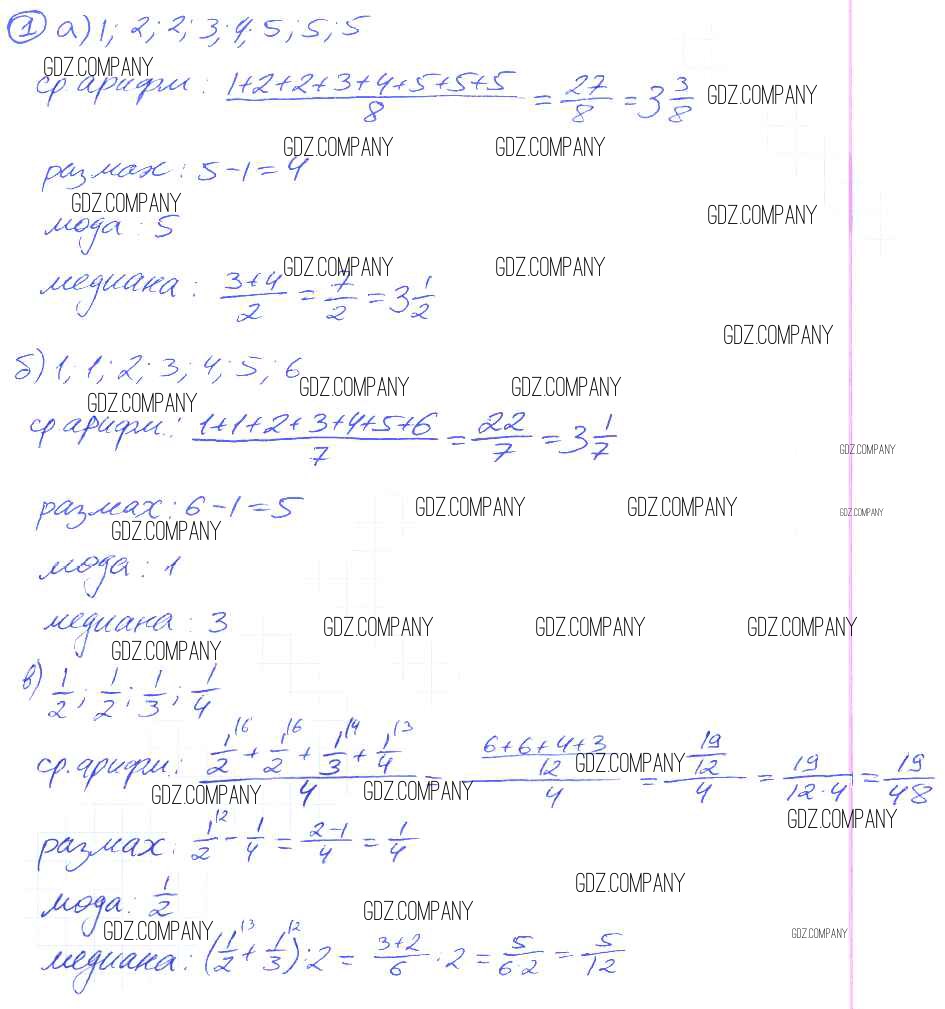 1 а) 1; 2; 2; 3; 4; 5; 5; 5
GDZ.COMPANY
ср арифм: (1+2+2+3+4+5+5+5)/8 = 27/8 = 3 3/8 GDZ.COMPANY
GDZ.COMPANY GDZ.COMPANY
размах: 5-1=4
GDZ.COMPANY GDZ.COMPANY
мода: 5
GDZ.COMPANY GDZ.COMPANY
медиана: (3+4)/2 = 7/2 = 3 1/2
GDZ.COMPANY
б) 1; 1; 2; 3; 4; 5; 6
GDZ.COMPANY GDZ.COMPANY
GDZ.COMPANY
ср арифм: (1+1+2+3+4+5+6)/7 = 22/7 = 3 1/7
GDZ.COMPANY
размах: 6-1=5 GDZ.COMPANY GDZ.COMPANY GDZ.COMPANY
GDZ.COMPANY
мода: 1
медиана: 3 GDZ.COMPANY GDZ.COMPANY GDZ.COMPANY
GDZ.COMPANY
в) 1/2; 1/2; 1/3; 1/4
ср. арифм.: (1/2 + 1/2 + 1/3 + 1/4)/4 = ((6+6+4+3)/12)/4 = (19/12)/4 = 19/(12·4) = 19/48
|6 |6 |4 |3
GDZ.COMPANY
GDZ.COMPANY GDZ.COMPANY
GDZ.COMPANY
размах: 1/2 |2 - 1/4 = (2-1)/4 = 1/4
GDZ.COMPANY
мода: 1/2
GDZ.COMPANY
GDZ.COMPANY GDZ.COMPANY
медиана: (1/2 |3 + 1/3 |2):2 = (3+2)/6 · 2 = 5/(6·2) = 5/12